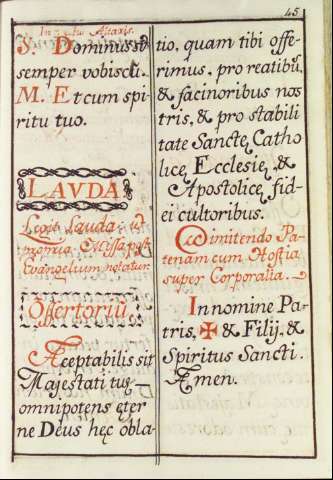 45
S. Dominus sit
semper vobiscũ.
M. Et cum spi
ritu tuo.
LAVDA
Legit Lauda, ut
propria Missa post
Evangelium notatur.
Offertoriũ
Aceptabilis sit
Majestati tuę
omnipotens ęter
ne Deus hęc obla-
tio, quam tibi offe-
rimus, pro reatibũ,
& facinoribus nos
tris, & pro stabili
tate Sanctę Catho
licę Ecclesię, &
Apostolicę fid-
ei cultoribus.
Dimitendo Pa-
tenam cum Hostia
super Corporalia.
In nomine Pa-
tris, ✠ & Filij, &
Spiritus Sancti.
Amen.